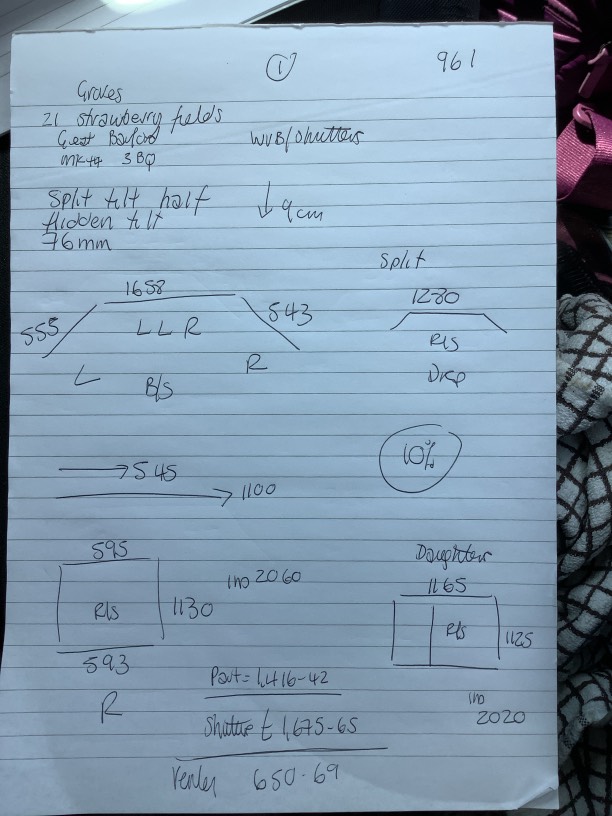 ① 961
Graves
21 strawberry fields
Great Barford
WVB/Shutters
MK44 3BQ
Split tilt half
Hidden tilt
76mm
↓ 9cm
Split
1658
555
543
L L R
L
R
B/S
1280
R/S
→ 545
→ 1100
10%
595
R/S
1130
593
R
1no 2060
Daughters
1165
R/S
1125
1no
2020
Part = 1,416-42
Shutter £ 1,675-65
650.69